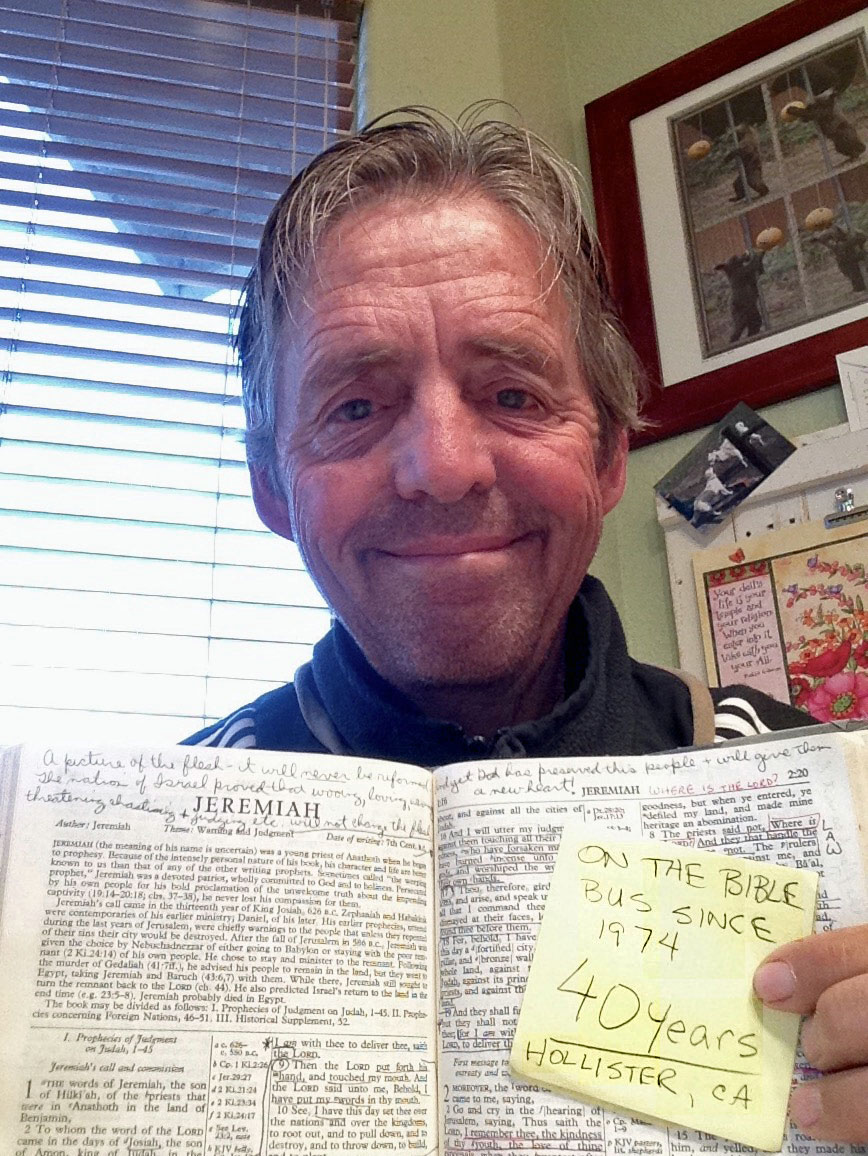 A picture of the flesh - it will never be reformed
The nation of Israel proved that wooing, loving,
threatening, chastising & judging etc, will not change the flesh
JEREMIAH
Author: Jeremiah Theme: Warning and Judgment Date of writing: 7th Cent.
JEREMIAH (the meaning of his name is uncertain) was a young priest of Anathoth when he began
to prophesy. Because of the intensely personal nature of his book, his character and life are better
known to us than that of any of the other writing prophets. Sometimes called "the weeping
prophet," Jeremiah was a devoted patriot, wholly committed to God and to holiness. Persecuted
by his own people for his bold proclamation of the unwelcome truth about the impending
captivity (19:14–20:18; chs. 37–38), he never lost his compassion for them.
Jeremiah's call came in the thirteenth year of King Josiah, 626 B.C. Zephaniah and Habakkuk
were contemporaries of his earlier ministry; Daniel, of his later. His earlier prophecies, uttered
during the last years of Jerusalem, were chiefly warnings to the people that unless they repented
of their sins their city would be destroyed. After the fall of Jerusalem in 586 B.C., Jeremiah was
given the choice by Nebuchadnezzar of either going to Babylon or staying with the poor rem-
nant (2 Ki.24:14) of his own people. He chose to stay and minister to the remnant. Following
the murder of Gedaliah (41:7ff.), he advised his people to remain in the land, but they went to
Egypt, taking Jeremiah and Baruch (43:6,7) with them. While there, Jeremiah still sought to
turn the remnant back to the LORD (ch. 44). He also predicted Israel's return to the land in the
end time (e.g. 23:5–8). Jeremiah probably died in Egypt.
The book may be divided as follows: I. Prophecies of Judgment on Judah, 1–45. II. Prophe-
cies concerning Foreign Nations, 46–51. III. Historical Supplement, 52.
I. Prophecies of Judgment
on Judah, 1–45
Jeremiah's call and commission
1 THE words of Jeremiah, the son
of Hilki'ah, of the priests that
were in Anathoth in the land of
Benjamin,
2 To whom the word of the LORD
came in the days of Josiah, the son
of Amon, king of Judah, in the
a c. 626–
c. 580 B.C.
b Cp. 1 Ki.2:26
c Jer.29:27
d 2 Ki.21:24
e 2 Ki.23:34
f 2 Ki.24:17
g See Lev.
23:2, note
h KJV
I am with thee to deliver thee, saith
the LORD.
9 Then the LORD put forth his
hand, and touched my mouth. And
the LORD said unto me, Behold, I
have put my words in thy mouth.
10 See, I have this day set thee over
the nations and over the kingdoms,
to root out, and to pull down, and to
destroy, and to throw down, to build,
and yet God has preserved this people + will give them
a new heart!
JEREMIAH
WHERE IS THE LORD?
2:20
bout, and against all the cities of
16 And I will utter my judg
against them touching all their
who have forsaken me
burned incense unto
and worshiped the
own hands.
17 Thou, therefore, gird
and arise, and speak
that I command thee
dismayed at their faces,
18 For, behold, I have
this day a fortified city
pillar, and bronze wall
whole land, against
Judah, against its prin
19 And they shall fi
but they shall not
for I am wi
LORD, to deliver
First message to
2 MOREOVER, the word
came to me, saying,
2 Go and cry in the hearing of
Jerusalem, saying, Thus saith the
LORD, I remember thee, the kindness
of thy youth, the love of thine
goodness, but when ye entered, ye
defiled my land, and made mine
heritage an abomination.
8 The priests said not, Where is
And they that handle the
not. The rulers
against me, and
Ba'al,
L
A
W
KJV pastors,
15 The
him, and yelled,
ON THE BIBLE
BUS SINCE
1974
40 years
HOLLISTER, CA
Your daily
life is your
temple and
your religion.
When you
enter into it
take with you
your all.